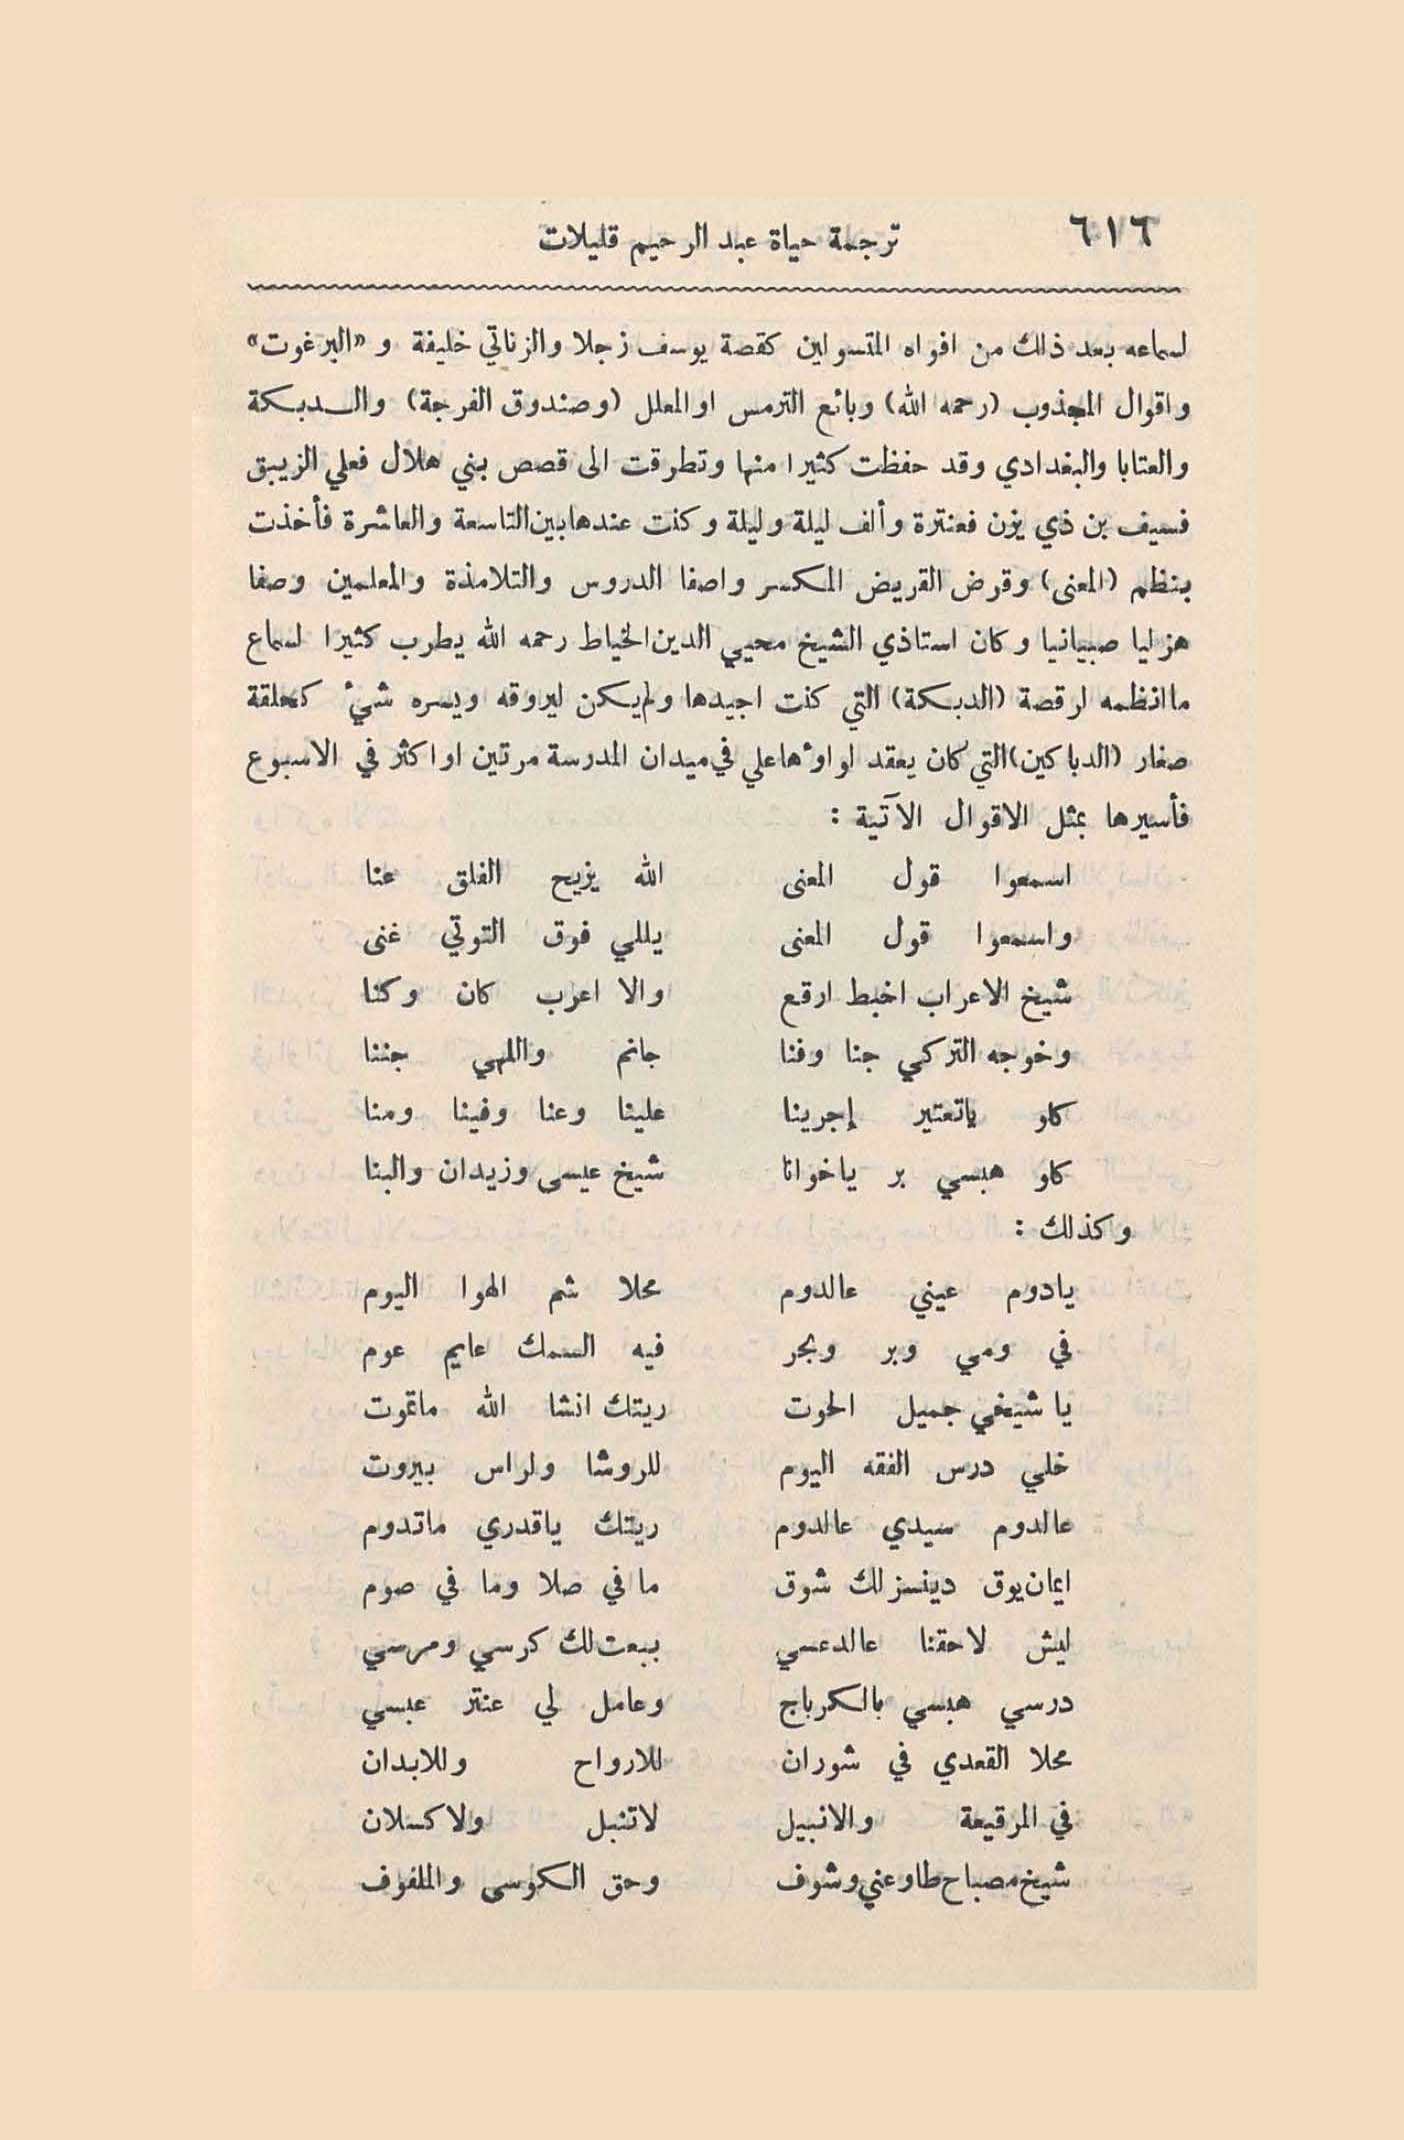 ٦١٦
ترجمة حياة عبد الرحيم قليلات
لسماعه بعد ذلك من افواه المتسولين كقصة يوسف زجلا والزناتي خليفة و «البرغوت»
واقوال المجذوب (رحمه الله) وبائع الترمس او المعلل (وصندوق الفرجة) والدبكة
والعتابا والبغدادي وقد حفظت كثيرا منها وتطرقت الى قصص بني هلال فعلي الزيبق
فسيف بن ذي يزن فعنترة وألف ليلة وليلة وكنت عندها بين التاسعة والعاشرة فأخذت
بنظم (المعنى) وقرض القريض المكسر واصفا الدروس والتلامذة والمعلمين وصفا
هزليا صبيانيا وكان استاذي الشيخ محيي الدين الخياط رحمه الله يطرب كثيرا لسماع
ما انظمه لرقصة (الدبكة) التي كنت اجيدها ولم يكن ليروقه ويسره شيء كحلقة
صغار (الدباكين) التي كان يعقد لواؤها علي في ميدان المدرسة مرتين او اكثر في الاسبوع
فأسيرها بمثل الاقوال الآتية :
اسمعوا قول المعنى الله يزيح الفلق عنا
واسمعوا قول المعنى يللي فوق التوتي غنى
شيخ الاعراب اخبط ارقع والا اعرب كان وكنا
وخوجه التركي جنا وفنا جانم واللهي جننا
كاو ياتعتير إجرينا علينا وعنا وفينا ومنا
كاو هبسي بر ياخوانا شيخ عيسى وزيدان والبنا
وكذلك :
يادوم عيني عالدوم محلا شم الهوا اليوم
في ومي وبر وبحر فيه السمك عايم عوم
يا شيخي جميل الحوت ريتك انشا الله ماتموت
خلي درس الفقه اليوم للروشا ولراس بيروت
عالدوم سيدي عالدوم ريتك ياقدري ماتدوم
ايمان يوق دينسز لك شوق ما في صلا وما في صوم
ليش لاحقنا عالدعسي ببعت لك كرسي ومرسي
درسي هبسي بالكرباج وعامل لي عنتر عبسي
محلا القعدي في شوران للارواح وللابدان
في المرقيعة والانبيل لاتنبل ولا كسلان
شيخ مصباح طاوعني وشوف وحق الكوسى والملفوف